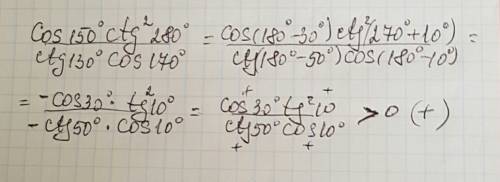 cos150° ctg² 280° / ctg130° cos170° = cos(180°-30°) ctg²(270°+10°) / ctg(180°-50°) cos(180°-10°) =
= -cos30° · tg²10° / -ctg50° · cos10° = cos30° tg²10 / ctg50° cos10° > 0 (+)